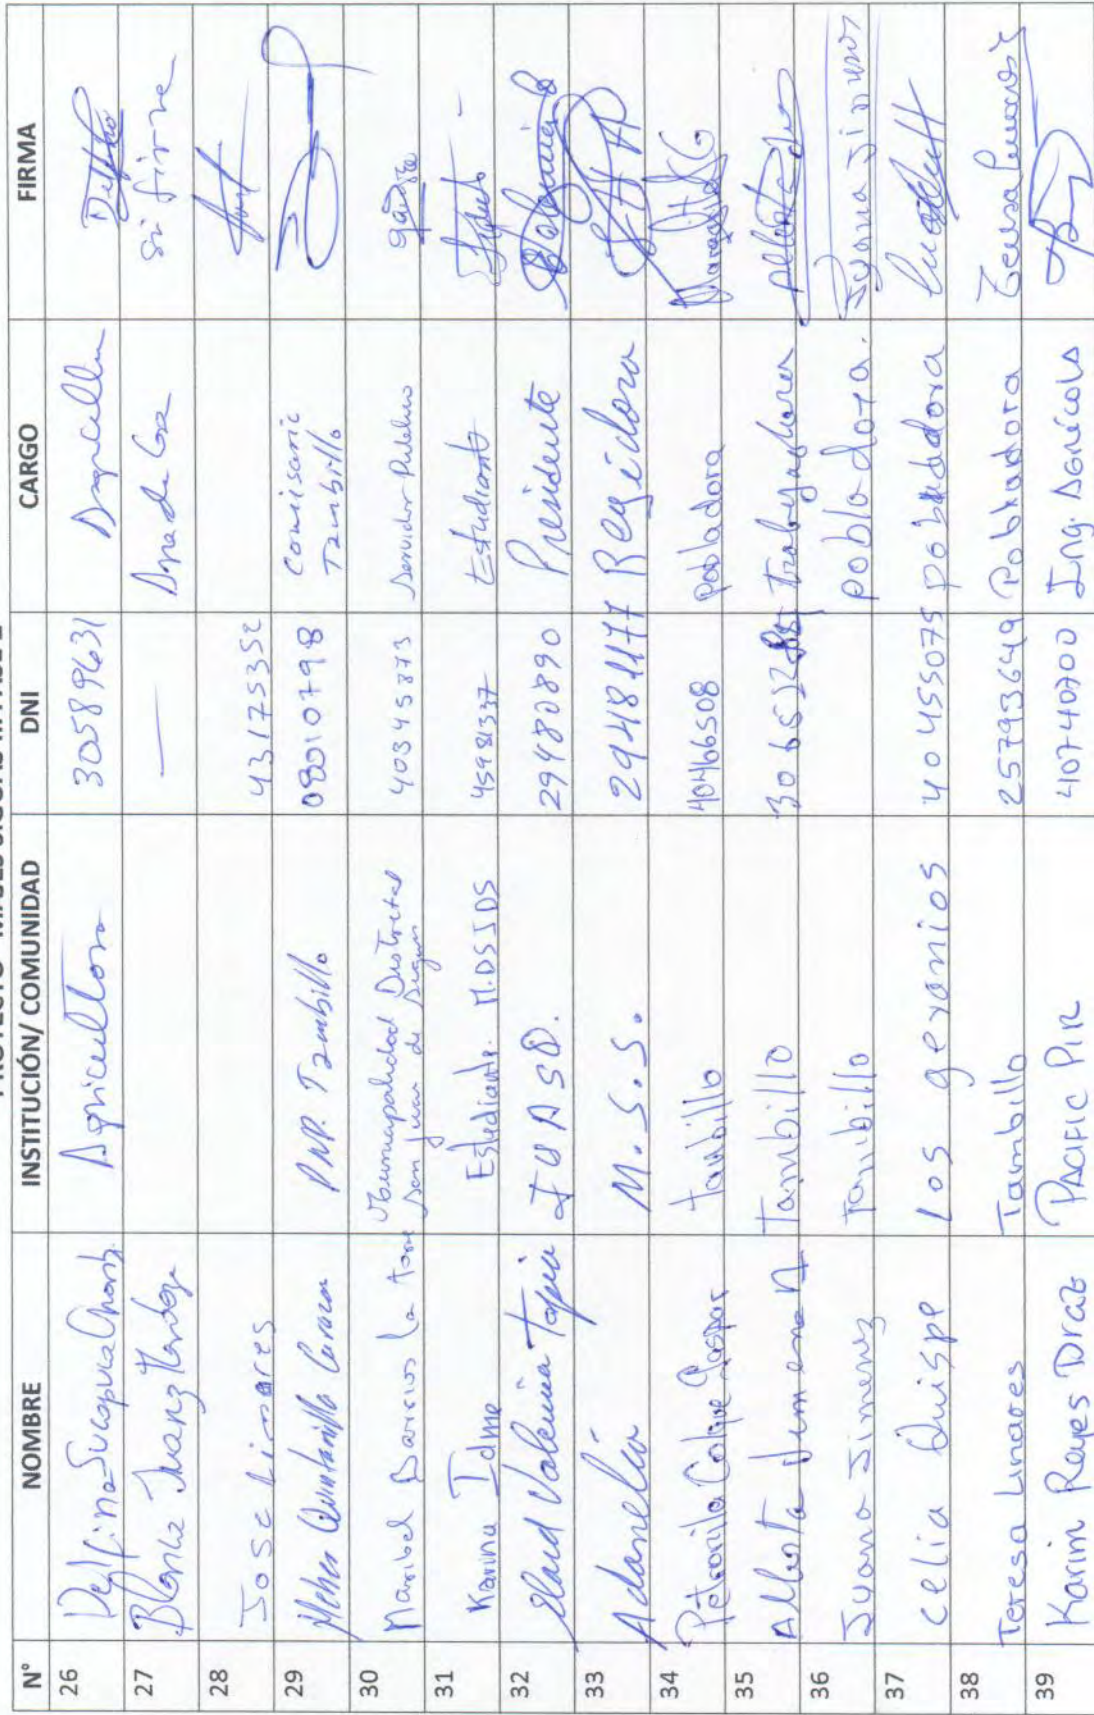 N° NOMBRE INSTITUCIÓN/ COMUNIDAD DNI CARGO FIRMA
26 Delfina Sucapuca Agricultora 30589631
27 Blanca — Ama de Casa si firme
28 Jose Linares 43175352
29 Quintanilla PNP. Tambillo 08010798 Comisario Tambillo
30 Maribel Barrios La Torre Municipalidad Distrital San Juan de Siguas 40345873 Servidor Publico
31 Karina Idme Estudiante. M.DSJDS 45981337 Estudiante
32 Elard Valencia Tapia JUASD. 29480890 Presidente
33 M.S.S. 29481177 Regidora
34 Petronila Colque Gaspar tambillo 40466508 pobladora
35 Alberta Jimena Tambillo trabajadora
36 Juana Jimenez Tambillo pobladora.
37 Celia Quispe Los geranios 40455075 pobladora
38 Teresa Linares Tambillo 25793649 Pobladora
39 Karim Reyes Diaz PACIFIC PIR 40740700 Ing. Agrícola